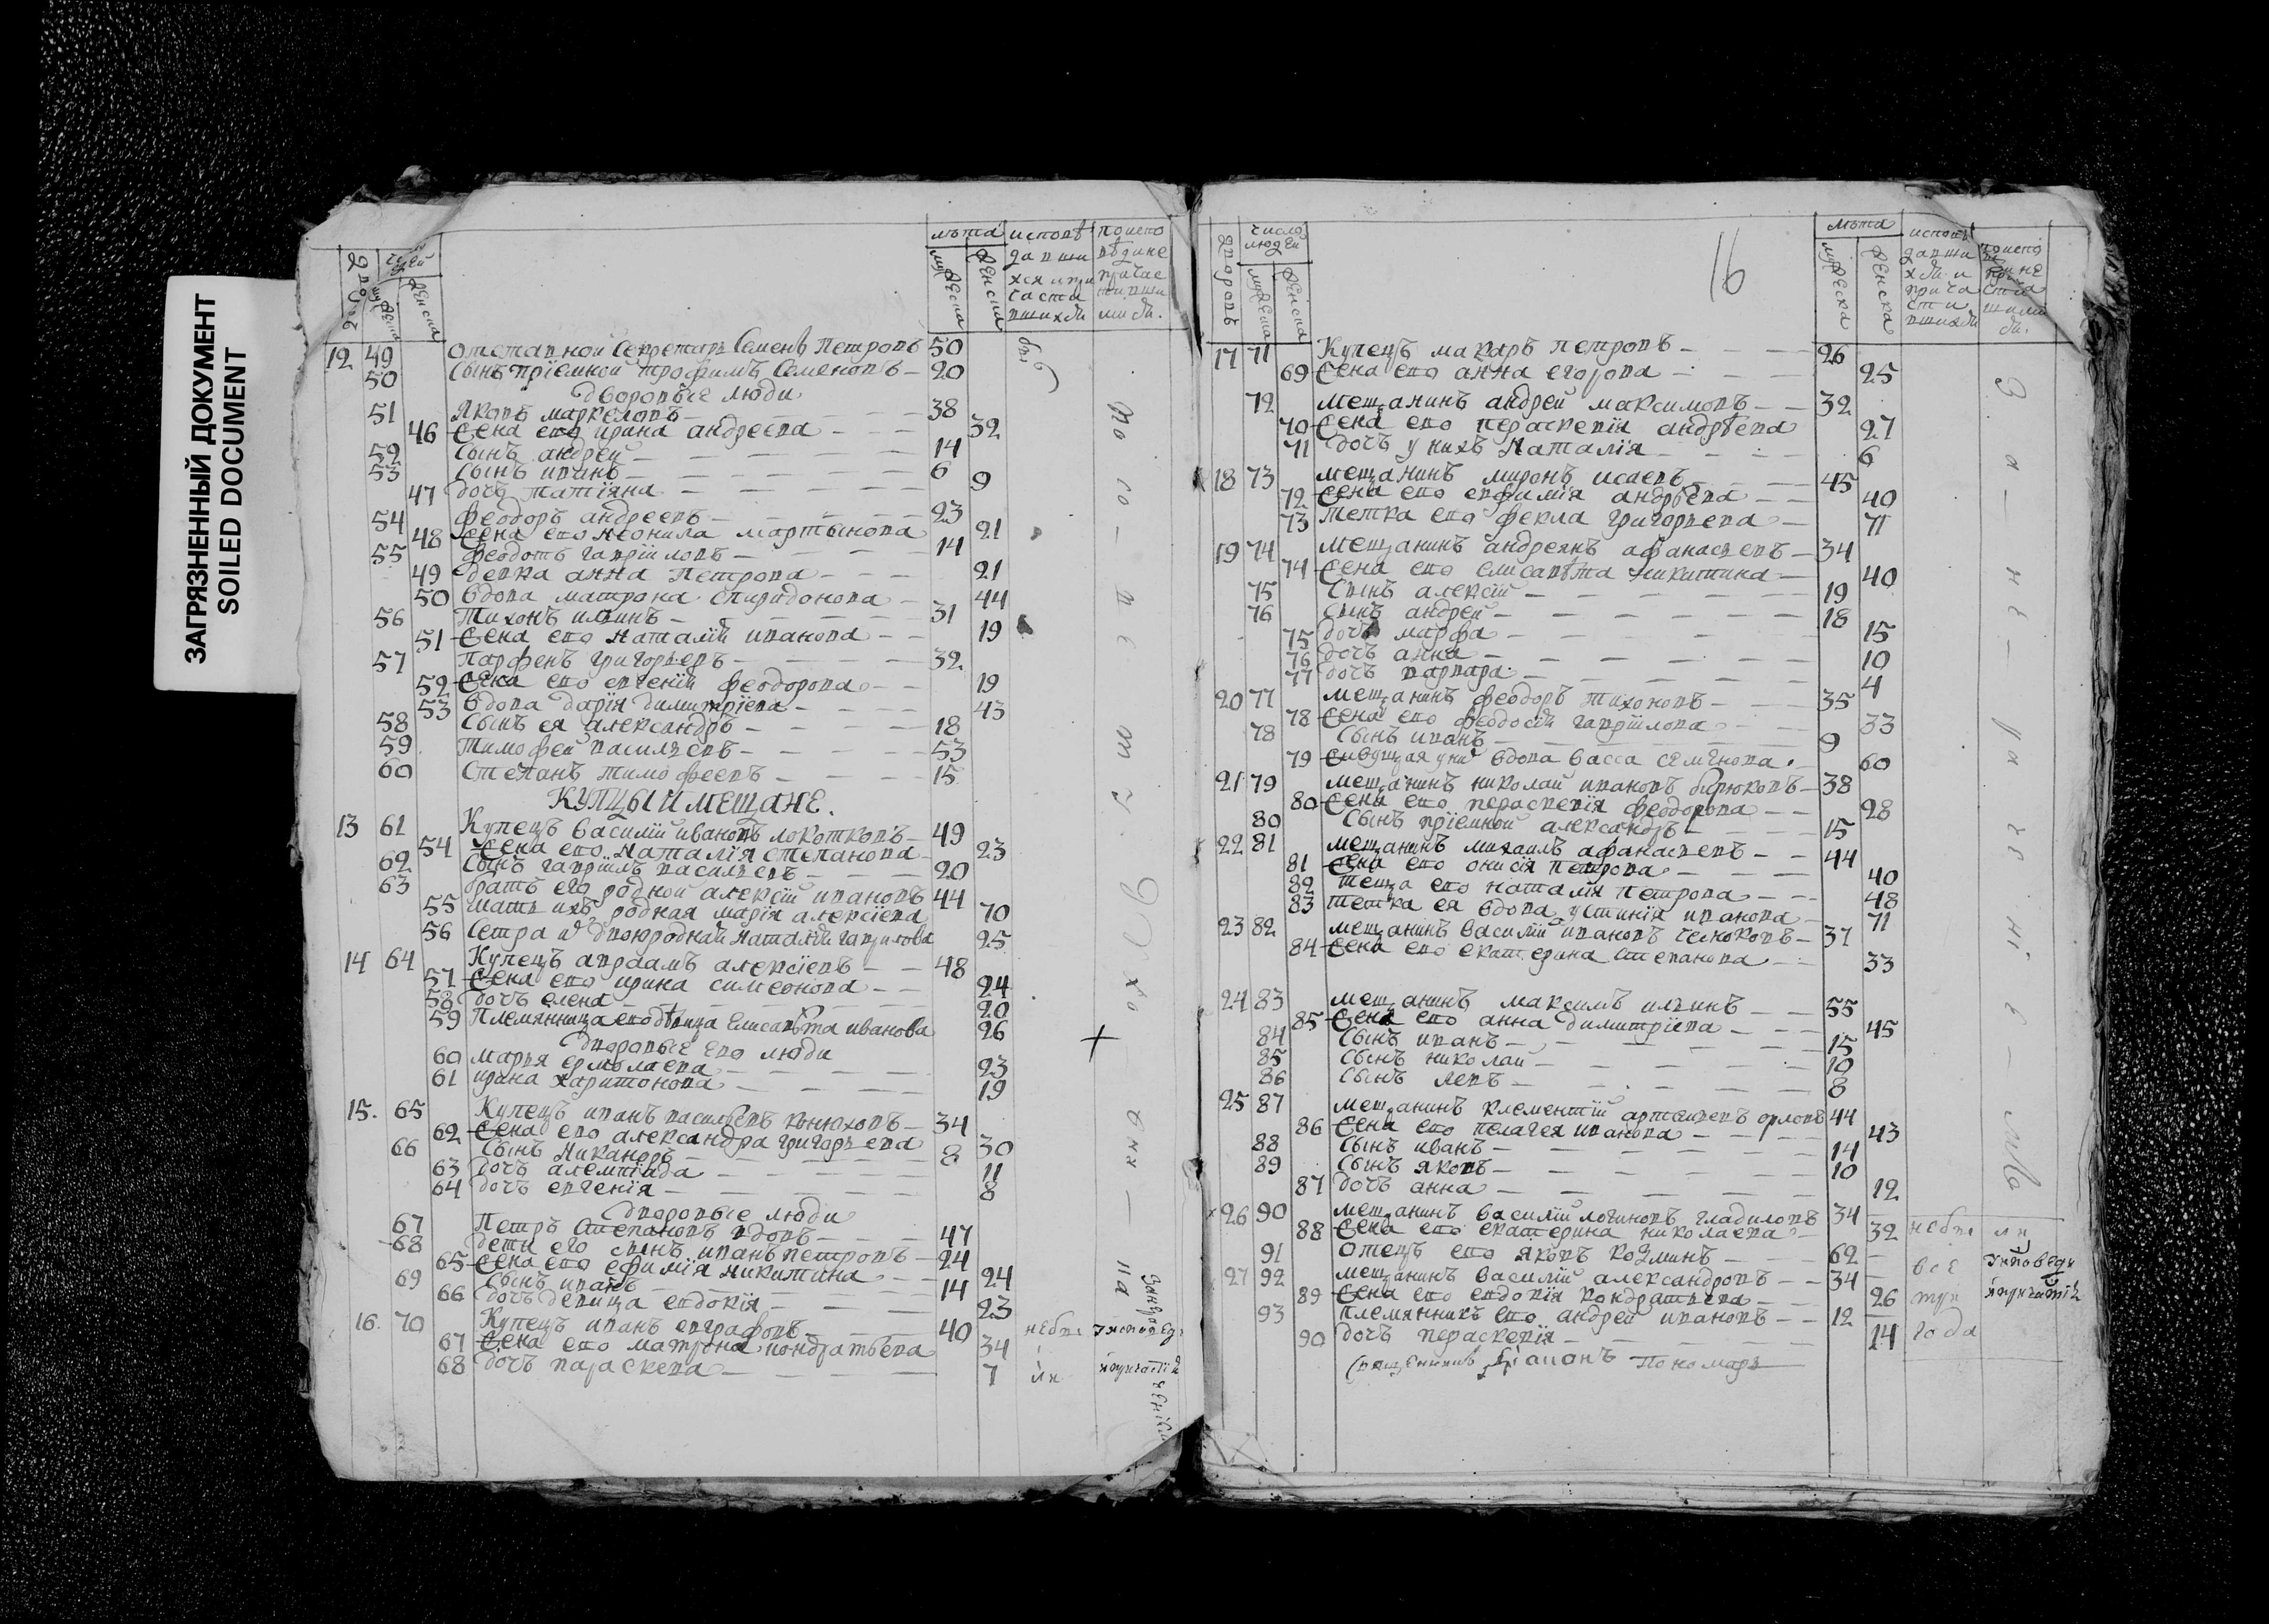 ЗАГРЯЗНЕННЫЙ ДОКУМЕНТ
SOILED DOCUMENT
лѣта
мужеска
женска
12 49 отставной Секретарь Семенъ Петровъ 50
50 Сынъ приемной трофимъ Семеновъ 20
Дворовые люди
51 Яковъ маркеловъ 38
46 Жена его ирина андреева 32
52 Сынъ андрей 14
53 Сынъ иванъ 6
47 дочь татїяна 9
54 феодоръ андреевъ 23
48 Жена его неонила мартынова 21
55 феодотъ гаврїиловъ 14
49 девка анна Петрова 21
50 вдова матрона спиридонова 44
56 Тихонъ ильинъ 31
51 Жена его наталїя иванова 19
57 Парфенъ григорьевъ 32
52 Жена его евгенїя феодорова 19
53 вдова дарїя димитрїева 43
58 Сынъ ея александръ 18
59 тимофей васильевъ 53
60 Степанъ тимофеевъ 15
КУПЦЫ И МЕЩАНЕ.
13 61 Купецъ Василїй ивановъ локотковъ 49
54 Жена его наталїя степанова 23
62 Сынъ гаврїилъ васильевъ 20
63 братъ его родной алексїй ивановъ 44
55 мать ихъ родная марїя алексїева 70
56 Сестра двоюродная наталїя гаврилова 25
14 64 Купецъ авраамъ алексїевъ 48
57 Жена его ирина симеонова 24
58 дочь елена 20
59 Племянница его девица Елисавѣта иванова 26
Дворовые его люди
60 марья ермолаева 23
61 ирина харитонова 19
15. 65 Купецъ иванъ васильевъ конюховъ 34
62 Жена его александра григорьева 30
66 Сынъ никаноръ 8
63 дочь алемпїада 11
64 дочь евгенїя 8
Дворовые люди
67 Петръ степановъ вдовъ 47
68 дети его сынъ иванъ петровъ 24
65 Жена его ефимїя никитина 24
69 Сынъ иванъ 14
66 дочь девица евдокїя 23
16. 70 Купецъ иванъ евграфовъ 40
67 Жена его матрона кондратьева 34
68 дочь параскева 7
16
дворовъ
число людей
мужеска
женска
лѣта
мужеска
женска
17 71 Купецъ макаръ петровъ 26
69 Жена его анна егорова 25
72 мещанинъ андрей максимовъ 32
70 Жена его параскевїя андрѣева 27
71 дочь у нихъ наталїя 6
18 73 мещанинъ миронъ исаевъ 45
72 Жена его евфимїя андрѣева 40
73 тетка его фекла григорьева 71
19 74 мещанинъ андреянъ афанасьевъ 34
74 Жена его елисавѣта никитина 40
75 Сынъ алексїй 19
76 Сынъ андрей 18
75 дочь марфа 15
76 дочь анна 10
77 дочь варвара 4
20 77 мещанинъ феодоръ тихоновъ 35
78 Жена его феодосїя гаврїилова 33
78 Сынъ иванъ 9
79 вдова васса семенова 60
21 79 мещанинъ николай ивановъ бирюковъ 38
80 Жена его параскевїя феодорова 28
80 Сынъ приемной александръ 15
22 81 мещанинъ михаилъ афанасьевъ 44
81 Жена его онисїя петрова 40
82 теща его наталїя петрова 48
83 тетка ея вдова устинїя иванова 71
23 82 мещанинъ василїй ивановъ чесноковъ 37
84 Жена его екатерина степанова 33
24 83 мещанинъ максимъ ильинъ 55
85 Жена его анна димитрїева 45
84 Сынъ иванъ 15
85 Сынъ николай 10
86 Сынъ левъ 8
25 87 мещанинъ клементїй орловъ 44
86 Жена его пелагея иванова 43
88 Сынъ иванъ 14
89 Сынъ яковъ 10
87 дочь анна 12
26 90 мещанинъ василїй логиновъ гладиловъ 34
88 Жена его екатерина николаева 32
91 отецъ его яковъ козминъ 62
27 92 мещанинъ василїй александровъ 34
89 Жена его евдокїя кондратьева 26
93 племянникъ его андрей ивановъ 12
90 дочь параскевїя 14